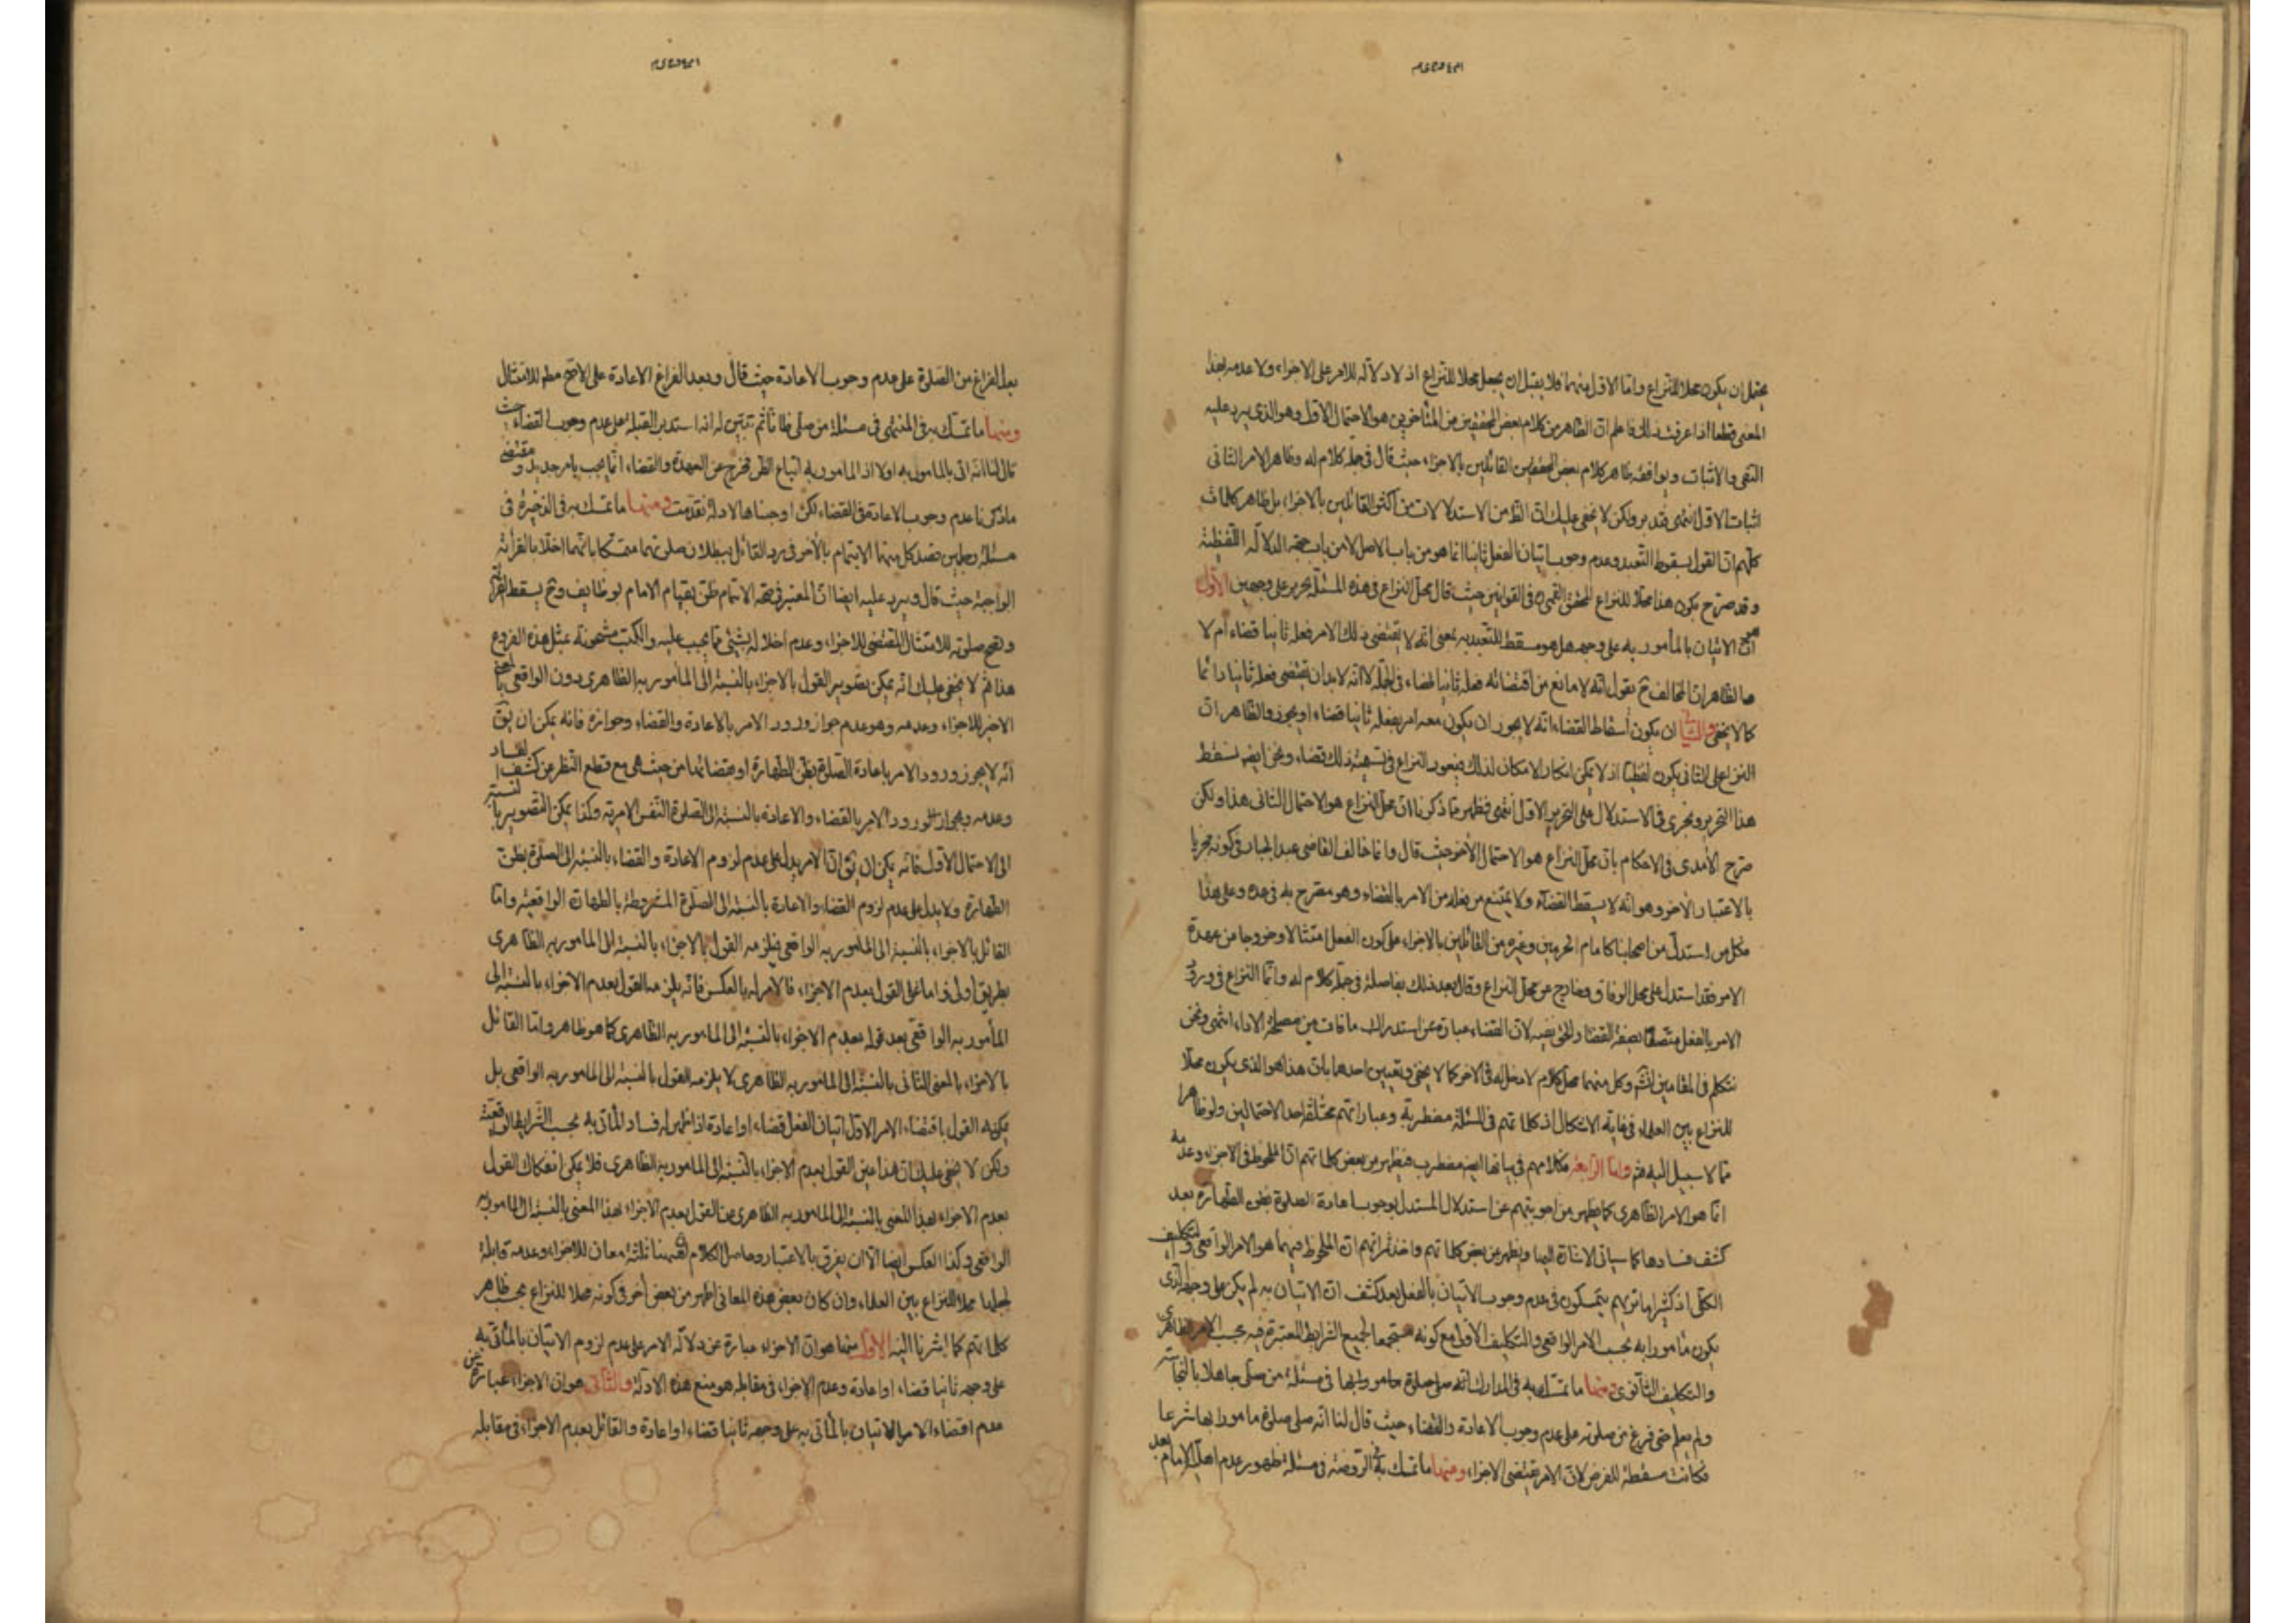 يحتمل ان يكون محلا للنزاع واما الاول منهما فلا يقبل ان يجعل محلا للنزاع اذ لا دلالة للامر على الاجزاء ولا عدمه بهذا
المعنى قطعا اذا عرفت ذلك فاعلم ان الظاهر من كلام بعض المحققين من المتأخرين هو الاحتمال الاول وهو الذي يرد عليه
النفى والاثبات ويوافقه ظاهر كلام بعض المحققين القائلين بالاجزاء حيث قال في جملة كلام له وظاهر الامر الثانى
اثبات الاول انتهى فتدبر ولكن لا يخفى عليك ان الظ من الاستدلالات من اكثر القائلين بالاجزاء بل ظاهر كلمات
كلهم ان القول بسقوط التعبد وعدم وجوب اتيان الفعل ثانيا انما هو من باب الاصل لا من باب جهة الدلالة اللفظية
وقد صرح بكون هذا محلا للنزاع المحقق القمى في القوانين حيث قال محل النزاع في هذه المسئلة يحرر على وجهين الاول
ان الاتيان بالمأمور به على وجهه هل هو مسقط للتعبد به بمعنى انه لا يقتضى ذلك الامر فعله ثانيا قضاء أم لا
الظاهر ان المخالف ح يقول انه لا مانع من اقتضائه فعله ثانيا قضاء في الجملة لا انه لا بد ان يقتضى فعله ثانيا دائما
كما لا يخفى والثانى ان يكون اسقاط القضاء انه لا يجوز ان يكون معه امر بفعله ثانيا قضاء او يجوز والظاهر ان
النزاع على الثانى يكون لفظيا اذ لا يمكن انكار الامكان لذلك فيعود النزاع في تسمية ذلك قضاء ونحن ايضا نسقط
هذا التحرير ونجرى في الاستدلال على التحرير الاول انتهى فظهر مما ذكرنا ان محل النزاع هو الاحتمال الثانى هذا ولكن
صرح الآمدى في الاحكام بان محل النزاع هو الاحتمال الأخر حيث قال وانما خالف القاضى عبد الجبار في كونه مجزيا
بالاعتبار الأخر وهو انه لا يسقط القضاء ولا يمتنع مع فعله من الامر بالقضاء وهو مصرح به في عمده وعلى هذا
فكل من استدل من اصحابنا كامام الحرمين وغيره من القائلين بالاجزاء على كون الفعل امتثالا وخروجا من عهدة
الامر فقد استدل على محل الوفاق وخارج عن محل النزاع وقال بعد ذلك بفاصلة في جملة كلام له وانما النزاع في ورود
الامر بالفعل متصفا بصفة القضاء والحق نفيه لان القضاء عبارة عن استدراك ما فات من مصلحة الاداء انتهى ونحن
نتكلم في المقامين وكل منهما محل كلام لا دخل له في الاخر كما لا يخفى وتعيين احدهما بان هذا هو الذي يكون محلا
للنزاع بين العلماء في غاية الاشكال اذ كلماتهم في المسئلة مضطربة وعباراتهم مختلفة احد الاحتمالين ولو ظاهرا
مما لا سبيل اليه واما الرابعة فكلامهم في بيانها ايضا مضطرب فيظهر من بعض كلماتهم ان الملحوظ في الاجزاء وعدمه
انما هو الامر الظاهرى كما يظهر من اجوبتهم عن استدلال المستدل بوجوب اعادة الصلوة بظن الطهارة بعد
كشف فسادها كما سياتى الاشارة اليها ويظهر من بعض كلماتهم واحد ثمراتهم ان الملحوظ فيهما هو الامر الواقعى والتكليف
الكلى اذ كثيرا ما تريهم يتمسكون في عدم وجوب الاتيان بالفعل بعد كشف ان الاتيان به لم يكن على وجهه الذى
يكون مأمورا به بحسب الامر الواقعى والتكليف الأولى مع كونه مستجمعا لجميع الشرايط المعتبرة فيه بحسب الامر الظاهرى
والتكليف الثانوى ومنها ما تمسك به في المدارك انه صلى صلوة مامورا بها في مسئلة من صلى جاهلا بالنجاسة
ولم يعلم حتى فرغ من صلوته على عدم وجوب الاعادة والقضاء حيث قال لنا انه صلى صلوة مامورا بها شرعا
فكانت مسقطة للفرض لان الامر يقتضى الاجزاء ومنها ما تمسك به في الروضة في مسئلة ظهور عدم اهلية الامام بعد
بعد الفراغ من الصلوة على عدم وجوب الاعادة حيث قال وبعد الفراغ لا اعادة على الاصح مطم للامتثال
ومنها ما تمسك به في المنتهى في مسئلة من صلى ظانا ثم تبين له انه استدبر القبلة على عدم وجوب القضاء حيث
قال لنا انه اتى بالمامور به اولا اذ المامور به اتباع الظن فخرج عن العهدة والقضاء انما يجب بامر جديد ومقتضى
ماذكرنا عدم وجوب الاعادة في القضاء لكن اوجبناها لادلة تقدمت ومنها ما تمسك به في الذخيرة في
مسئلة رجلين قصد كل منهما الايتمام بالأخر في رد القائل ببطلان صلوتهما متمسكا بانهما اخلا بالقرائة
الواجبة حيث قال ويرد عليه ايضا ان المعتبر في صحة الايتمام ظن بقيام الامام بوظايف وح يسقط القرائة
وتصح صلوته للامتثال المقتضى للاجزاء وعدم اخلاله بشئ مما يجب عليه والكتب مشحونة بمثل هذه الفروع
هذا ثم لا يخفى عليك انه يمكن تصوير القول بالاجزاء بالنسبة الى المأمور به الظاهرى دون الواقعى بالمعنى
الاخير للاجزاء وعدمه وهو عدم جواز ورود الامر بالاعادة والقضاء وجوازه فانه يمكن ان يق
انه لا يجوز ورود الامر باعادة الصلوة بظن الطهارة او بقضائها من حيث هى مع قطع النظر عن كشف الفساد
وعدمه وبجواز ورود الامر بالقضاء والاعادة بالنسبة الى الصلوة النفس الامرية وكذا يمكن التصوير بالنسبة
الى الاحتمال الاول فانه يمكن ان يق ان الامر يدل على عدم لزوم الاعادة والقضاء بالنسبة الى الصلوة بظن
الطهارة ولا يدل على عدم لزوم القضاء والاعادة بالنسبة الى الصلوة المشروطة بالطهارة الواقعية واما
القائل بالاجزاء بالنسبة الى المامور به الواقعى فيلزمه القول بالاجزاء بالنسبة الى المامور به الظاهرى
بطريق أولى واما على القول بعدم الاجزاء فالأمر له بالعكس فانه يلزمه القول بعدم الاجزاء بالنسبة الى
المأمور به الواقعى بعد قوله بعدم الاجزاء بالنسبة الى المامور به الظاهرى كما هو ظاهر واما القائل
بالاجزاء بالمعنى الثانى بالنسبة الى المامور به الظاهرى لا يلزمه القول بالنسبة الى المامور به الواقعى بل
يمكنه القول باقتضاء الامر الاول اتيان الفعل قضاء او اعادة اذا ظهر له فساد المأتى به بحسب الشرايط الواقعية
ولكن لا يخفى عليك ان هذا عين القول بعدم الاجزاء بالنسبة الى المامور به الظاهرى فلا يمكن انفكاك القول
بعدم الاجزاء بهذا المعنى بالنسبة الى المامور به الظاهرى عن القول بعدم الاجزاء بهذا المعنى بالنسبة الى المامور به
الواقعى وكذا العكس ايضا الا ان يفرق بالاعتبار وحاصل الكلام ان هيهنا ثلثة معان للاجزاء وعدمه قابلة
لجعلها محلا للنزاع بين العلماء وان كان بعض هذه المعانى اظهر من بعض أخر في كونه محلا للنزاع بحسب ظاهر
كلماتهم كما اشرنا اليه الاول منها هو ان الاجزاء عبارة عن دلالة الامر على عدم لزوم الاتيان بالمأتى به
على وجهه ثانيا قضاء او اعادة وعدم الاجزاء في مقابله هو منع هذه الادلة والثانى هو ان الاجزاء عبارة عن
عدم اقتضاء الامر الاتيان بالمأتى به على وجهه ثانيا قضاء او اعادة والقائل بعدم الاجزاء في مقابله